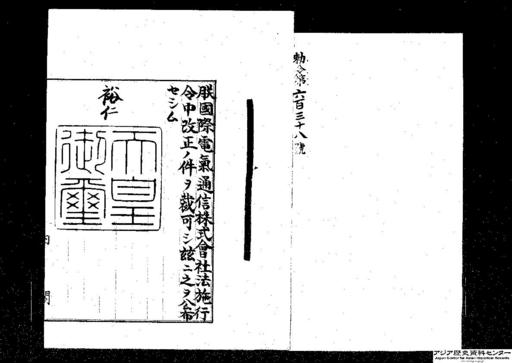 勅令第六百三十八號
朕國際電氣通信株式會社法施行
令中改正ノ件ヲ裁可シ茲ニ之ヲ公布
セシム
裕仁
天皇
御璽
内閣
アジア歴史資料センター
Japan Center for Asian Historical Records